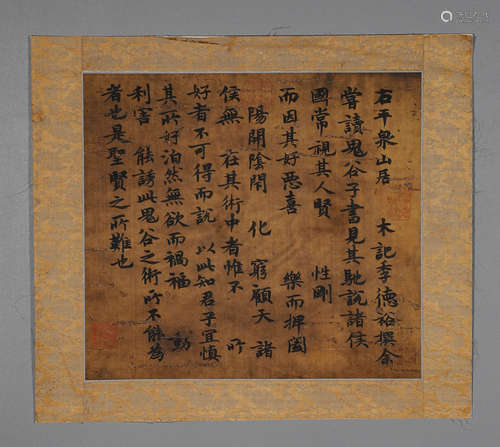 右平泉山居 木記李德裕撰余
嘗讀鬼谷子書見其馳說諸侯
國常視其人賢 性剛
而因其好惡喜 樂而捭闔
陽開陰閉 化 窮顧天 諸
侯無 在其術中者惟不 所
好者不可得而說 以此知君子宜慎
其所好泊然無欲而禍福 動
利害 能誘此鬼谷之術所不能為
者也是聖賢之所難也